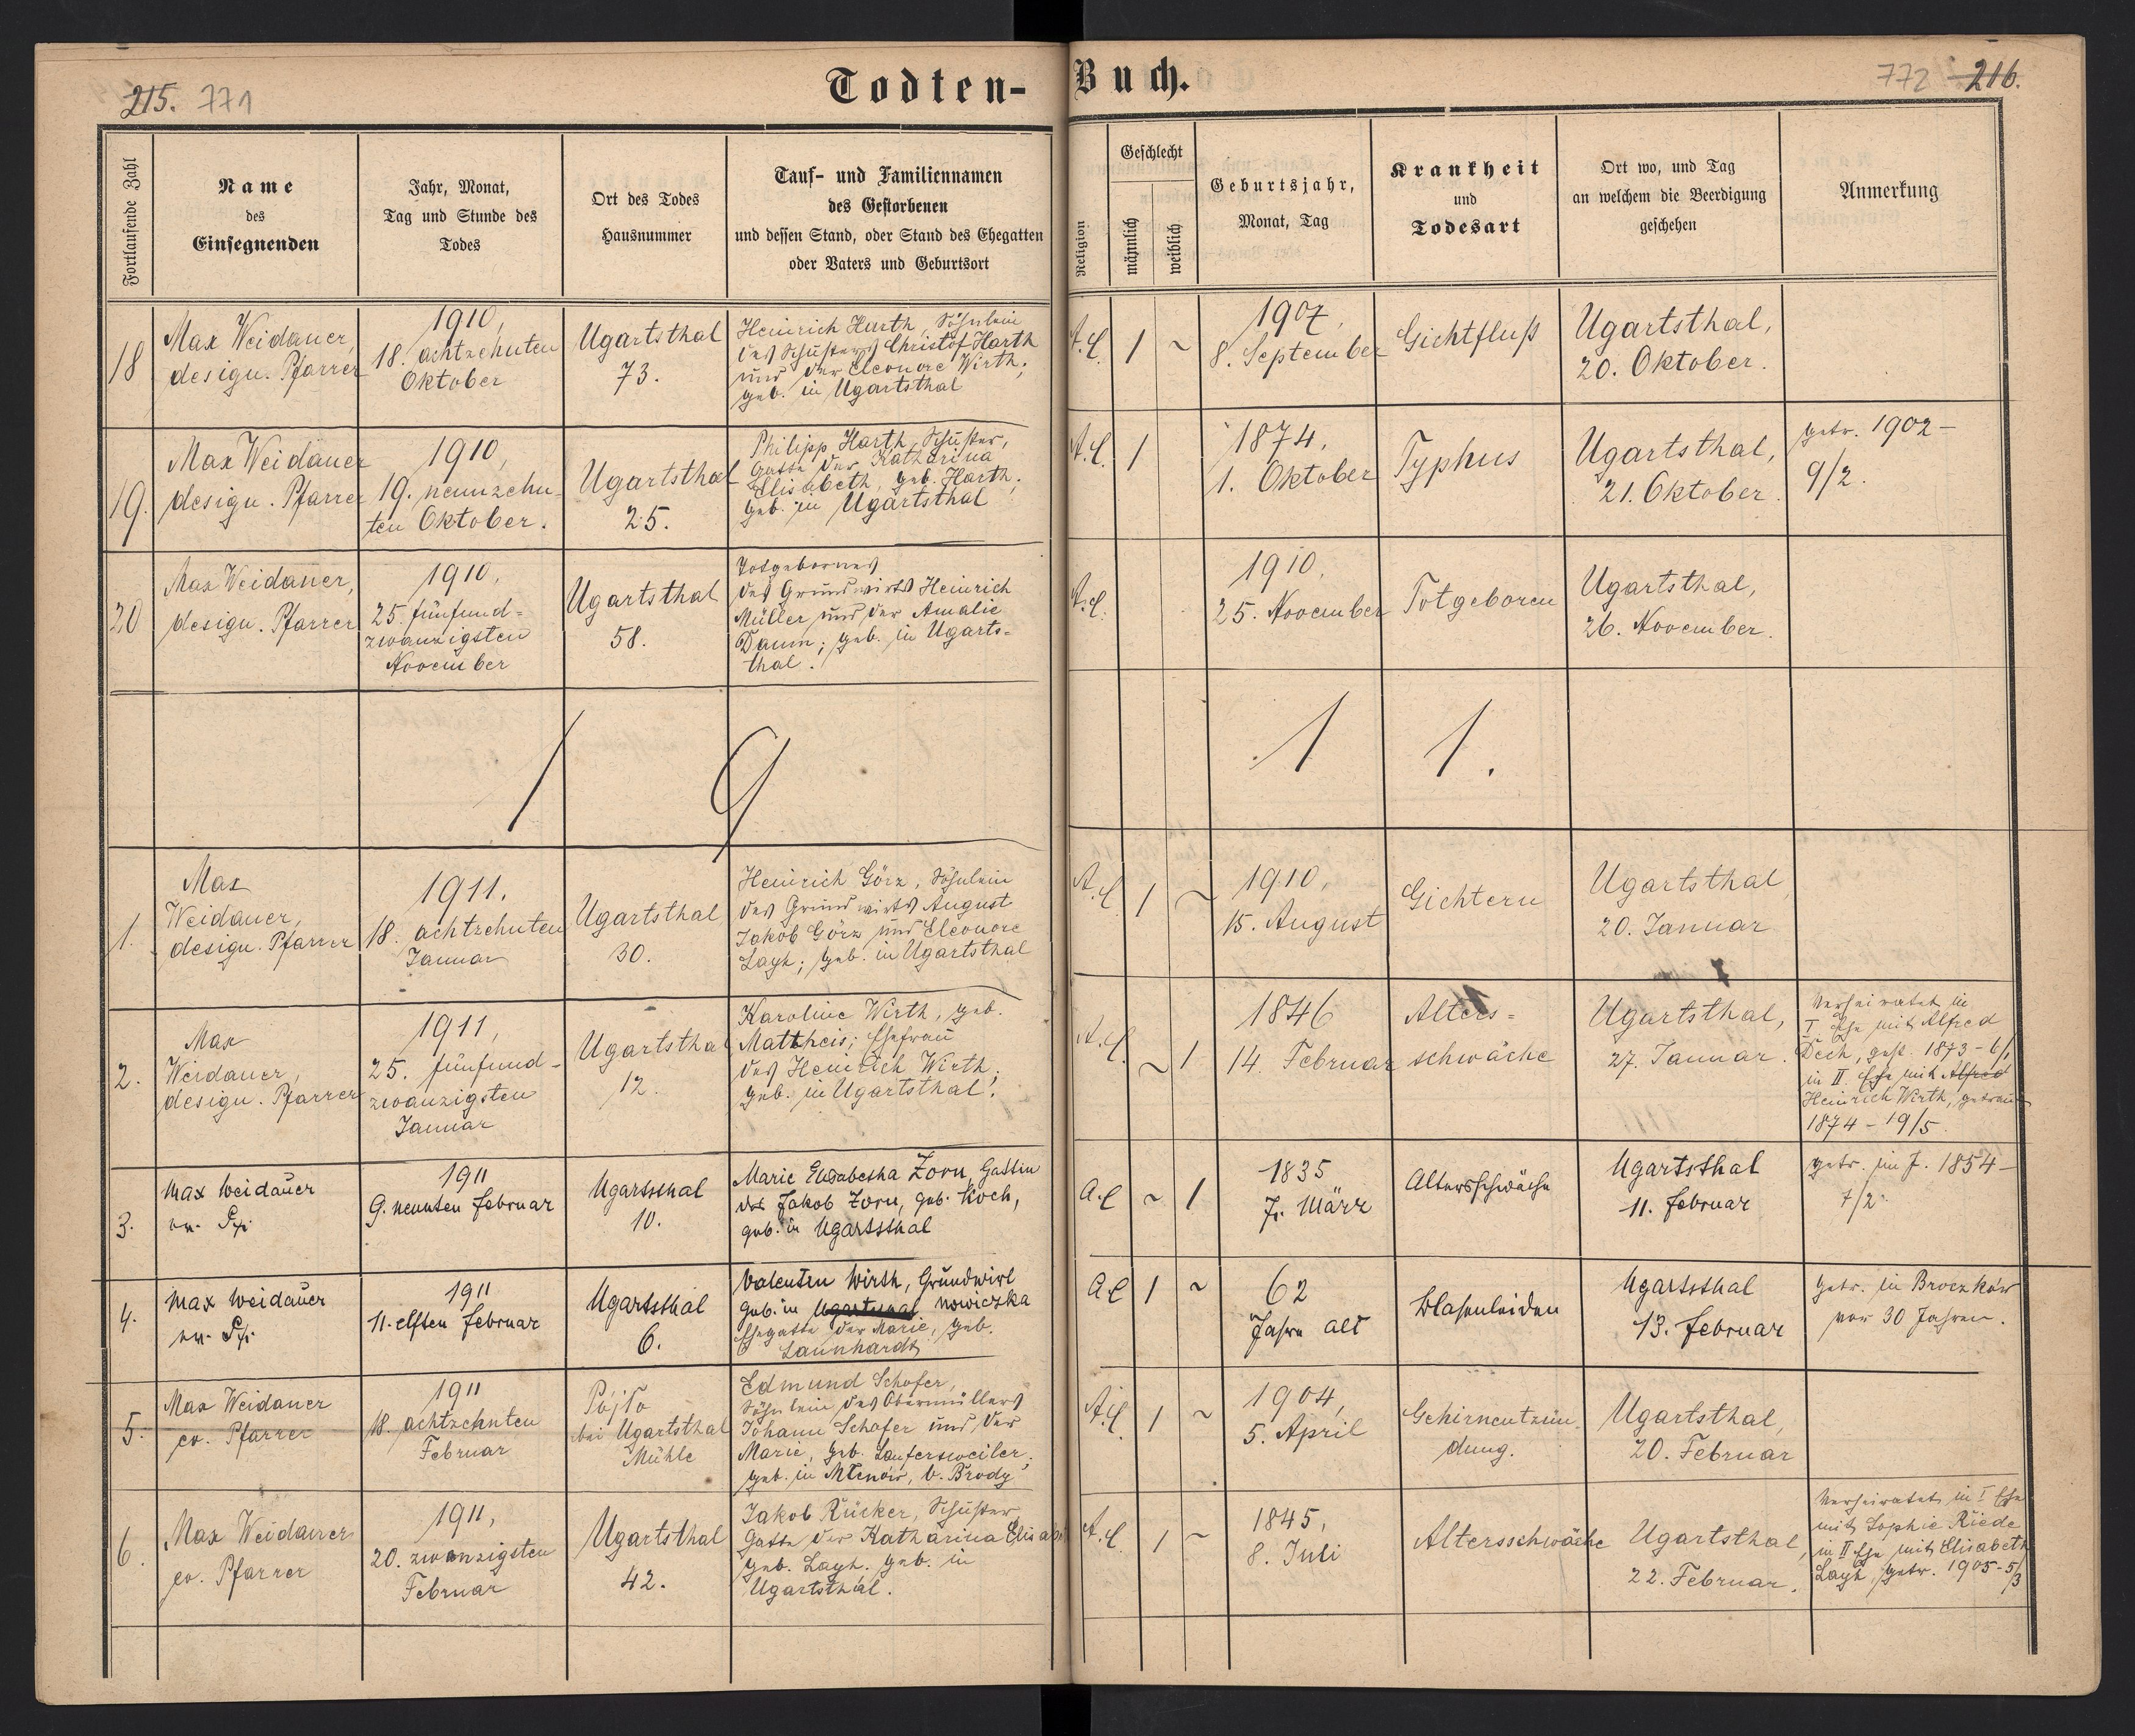 215. 771
Todten-
Buch.
772 216.
Fortlaufende Zahl
Name
des
Einsegnenden
Jahr, Monat,
Tag und Stunde des
Todes
Ort des Todes
Hausnummer
Tauf- und Familiennamen
des Gestorbenen
und dessen Stand, oder Stand des Ehegatten
oder Vaters und Geburtsort
Religion
Geschlecht
männlich
weiblich
Geburtsjahr,
Monat, Tag
Krankheit
und
Todesart
Ort wo, und Tag
an welchem die Beerdigung
geschehen
Anmerkung
18
Max Weidauer,
design. Pfarrer
1910,
18. achtzehnten
Oktober
Ugartsthal
73.
Heinrich Harth, Söhnlein
des Schusters Christof Harth
und der Eleonore Wirth;
geb. in Ugartsthal
A.C.
1
~
1907,
8. September
Gichtfluß
Ugartsthal,
20. Oktober.
19.
Max Weidauer
design. Pfarrer
1910,
19. neunzehn-
ten Oktober.
Ugartsthal
25.
Philipp Harth, Schuster,
Gatte der Katharina
Elisabeth, geb. Harth;
geb. in Ugartsthal
A.C.
1
1874,
1. Oktober
Typhus
Ugartsthal,
21. Oktober.
getr. 1902-
9/2.
20
Max Weidauer,
design. Pfarrer
1910,
25. fünfund-
zwanzigsten
November
Ugartsthal
58.
Totgebornes
des Grundwirts Heinrich
Müller und der Amalie
Daum; geb. in Ugarts-
thal.
A.C.
1910,
25. November
Totgeboren
Ugartsthal,
26. November.
1 9 1 1.
1.
Max
Weidauer,
design. Pfarrer
1911.
18. achtzehnten
Januar
Ugartsthal
30.
Heinrich Görz, Söhnlein
des Grundwirts August
Jakob Görz und Eleonore
Layh; geb. in Ugartsthal
A.C.
1
~
1910,
15. August
Gichtern
Ugartsthal
20. Januar
2.
Max
Weidauer,
design. Pfarrer
1911,
25. fünfund-
zwanzigsten
Januar
Ugartsthal
12.
Karoline Wirth, geb.
Mattheis; Ehefrau
des Heinrich Wirth;
geb. in Ugartsthal.
A.C.
~
1
1846
14. Februar
Alters-
schwäche
Ugartsthal,
27. Januar.
Verheiratet in
I. Ehe mit Alfred
Dech, gest. 1873-6/1
in II. Ehe mit Alfred
Heinrich Wirth, getraut
1874-19/5.
3.
Max Weidauer
ev. Pf.
1911
9. neunten Februar
Ugartsthal
10.
Marie Elisabetha Zorn, Gattin
des Jakob Zorn, geb. Koch,
geb. in Ugartsthal
A.C
~
1
1835
7. März
Altersschwäche
Ugartsthal
11. Februar
getr. im J. 1854-
7/2.
4.
Max Weidauer
ev. Pf.
1911
11. elften Februar
Ugartsthal
6.
Valentin Wirth, Grundwirt
geb. in Ugartsthal Nowiczka
Ehegatte der Marie, geb.
Launhardt
A.C
1
~
62
Jahre alt
Blasenleiden
Ugartsthal
13. Februar
getr. in Broczków
vor 30 Jahren.
5.
Max Weidauer
ev. Pfarrer
1911
18. achtzehnten
Februar
Pójło
bei Ugartsthal
Mühle
Edmund Schofer,
Söhnlein des Obermüllers
Johann Schofer und der
Marie, geb. Laufersweiler;
b. Brody
A.C.
1
~
1904,
5. April
Gehirnentzün-
dung.
Ugartsthal,
20. Februar
6.
Max Weidauer
ev. Pfarrer
1911,
20. zwanzigsten
Februar
Ugartsthal
42.
Jakob Rücker, Schuster
Gatte der Katharina Elisabet
geb. Layh. geb. in
Ugartsthal.
A.C.
1
~
1845,
8. Juli
Altersschwäche
Ugartsthal,
22. Februar.
Verheiratet in I Ehe
mit Sophie Riede
in II Ehe mit Elisabeth
Layh, getr. 1905-5/3